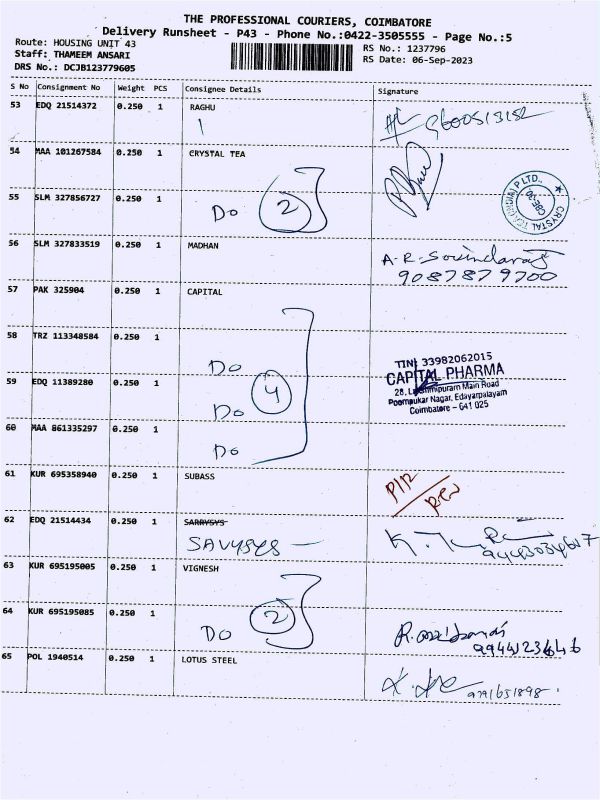 THE PROFESSIONAL COURIERS, COIMBATORE
Delivery Runsheet - P43 - Phone No.:0422-3505555 - Page No.:5
Route: HOUSING UNIT 43
Staff: THAMEEM ANSARI
DRS No.: DCJB123779605
RS No.: 1237796
RS Date: 06-Sep-2023
S No Consignment No Weight PCS Consignee Details Signature
53 EDQ 21514372 0.250 1 RAGHU 9600513152
54 MAA 101267584 0.250 1 CRYSTAL TEA
55 SLM 327856727 0.250 1 Do 2
CRYSTAL TEA (INDIA) P LTD.,
CBE-30
56 SLM 327833519 0.250 1 MADHAN A.R. Sovindaraj
9087879700
57 PAK 325904 0.250 1 CAPITAL
58 TRZ 113348584 0.250 1 Do
59 EDQ 11389280 0.250 1 Do 4
60 MAA 861335297 0.250 1 Do
TIN: 33982062015
CAPITAL PHARMA
28, Lakshmipuram Main Road
Poompukar Nagar, Edayarpalayam
Coimbatore - 641 025
61 KUR 695358940 0.250 1 SUBASS
62 EDQ 21514434 0.250 1 SARRYSYS
SAVYSYS
63 KUR 695195005 0.250 1 VIGNESH
64 KUR 695195085 0.250 1 Do 2
65 POL 1940514 0.250 1 LOTUS STEEL 9791651898